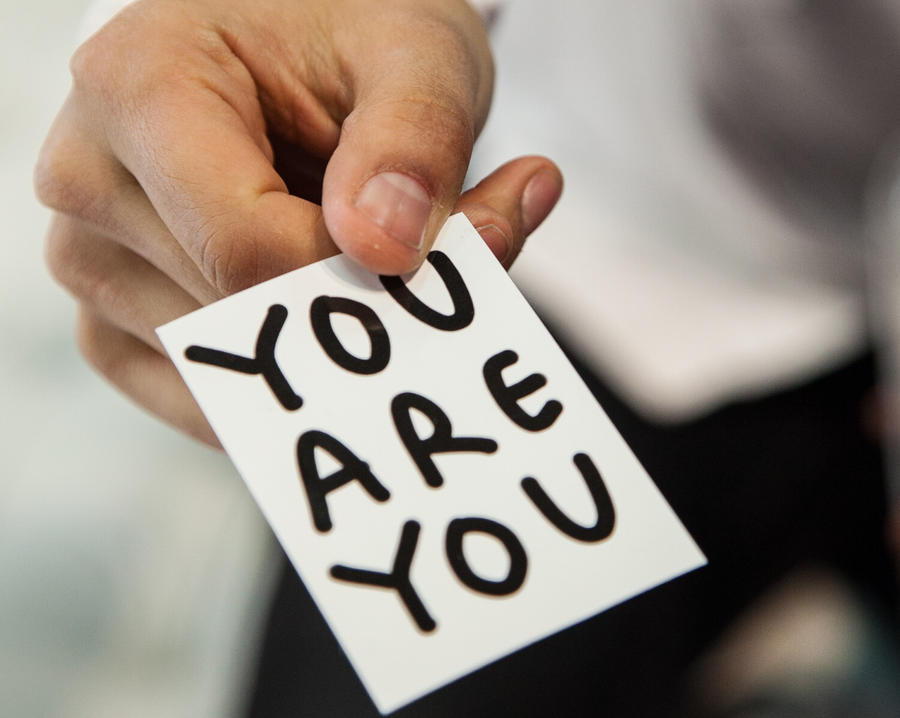 YOU
ARE
YOU